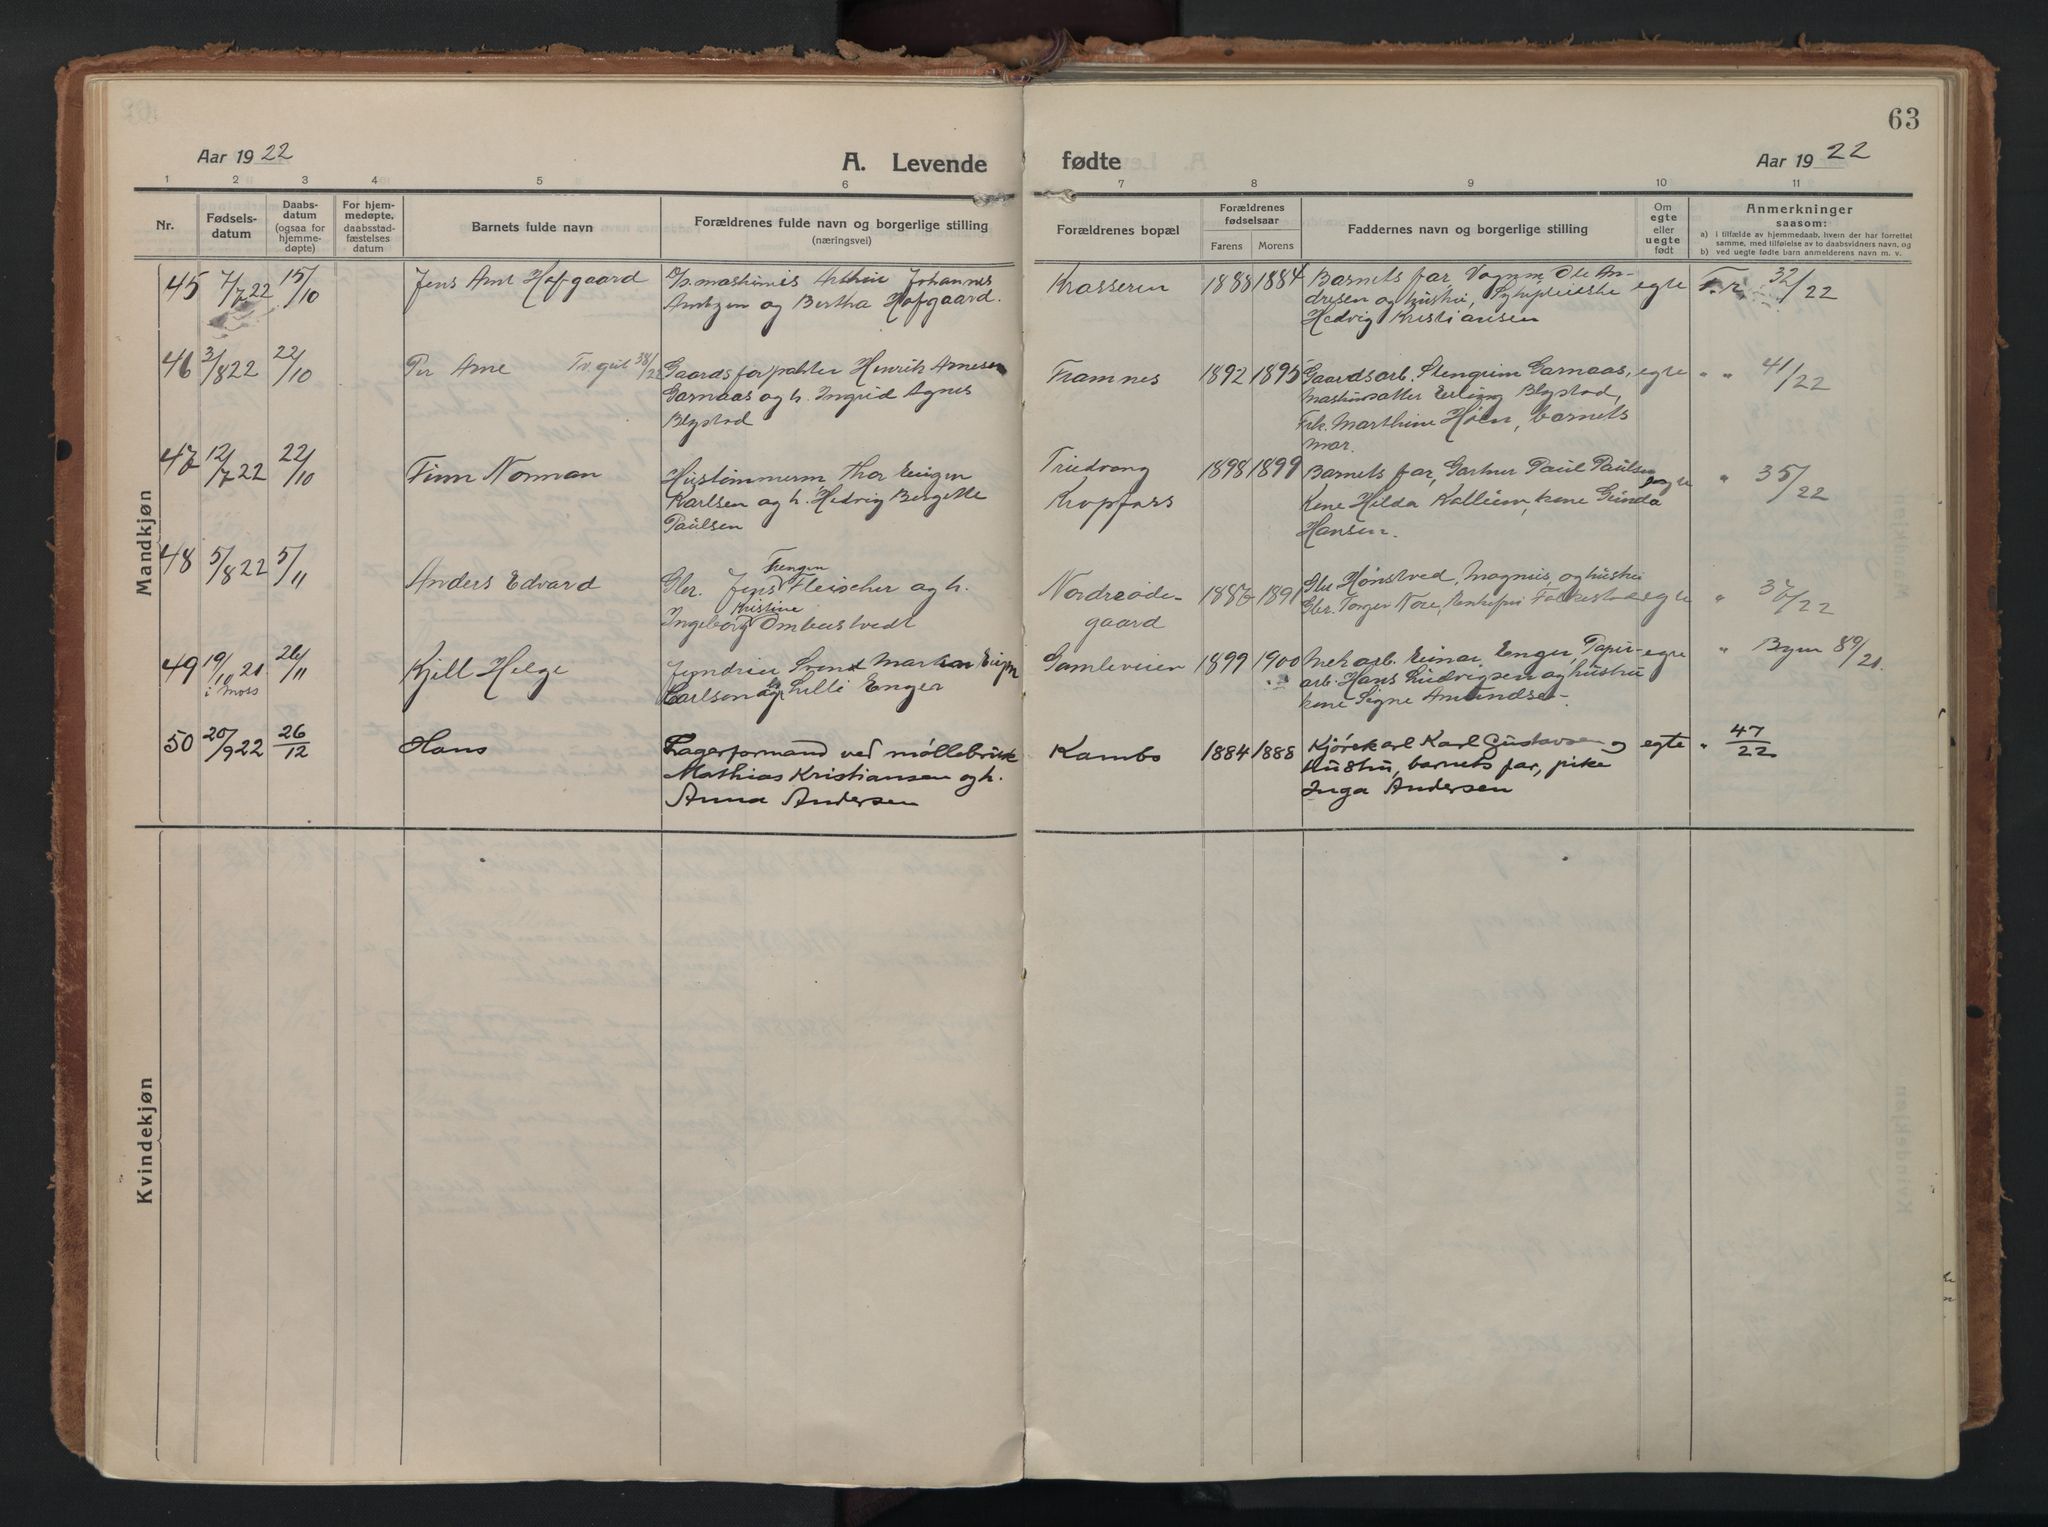 63
Aar 1922
A. Levende
fødte
Aar 1922
1 2 3 4 5 6 7 8 9 10 11
Nr.
Fødsels-
datum
Daabs-
datum
(ogsaa for
hjemme-
døpte)
For hjem-
medøpte,
daabsstad-
fæstelses
datum
Barnets fulde navn
Forældrenes fulde navn og borgerlige stilling
(næringsvei)
Forældrenes bopæl
Forældrenes
fødselsaar
Farens Morens
Faddernes navn og borgerlige stilling
Om
egte
eller
uegte
født
Anmerkninger
saasom:
a) i tilfælde av hjemmedaab, hvem der har forrettet
samme, med tilføielse av to daabsvidners navn, og
b) ved uegte fødte barn anmelderens navn m. v.
Mandkjøn
45 7/7 22 15/10
Jens Arne Hofgaard
Arthur Johannes
Arntzen og Bertha Hofgaard.
Krasseren
1888 1884
Barnets far, Vognm. Ole An-
dresen og hustru, Sykepleierske
Hedvig Kristiansen
egte
F. r. 32/22
46 3/8 22 22/10
Per Arne Tv. gut 38/22
Gaardsforpakter Henrik Arnesen
Garnaas og h. Ingrid Agnes
Blystad
Framnes
1892 1895
Gaardsarb. Stengrim Garnaas,
Erling Blystad,
Frk. Marthine Høen, barnets
mor.
egte
" " 41/22
47 12/7 22 22/10
Finn Norman
Hustømmerm. Thor Eugen
Karlsen og h. Hedvig Bergette
Paulsen
Kropfoss
1898 1899
Barnets far, Gartner Paul Paulsen
Kone Hilda Kallum, kone Gunda
Hansen.
egte
" 35/22
48 5/8 22 5/11
Anders Edvard
Gbr. Jens Fleischer og h.
Ingeborg Kristine Ombustvedt
Nordre øde-
gaard
1887 1891
Gbr. Hønstved, Magnus, og hustru
Gbr. Torger Nore,
egte
" 37/22
49 19/10 21. 26/11
i Moss
Kjell Helge
Carlson og h. Lilli Enger
Gamleveien
1899 1900
Mek. arb. Einar Enger, Papir-
arb. Hans Ludvigsen og hustru
kone Signe Amundsen.
egte
" Bym 89/21.
50 20/9 22 26/12
Hans
Lagerformand ved møllebruk
Mathias Kristiansen og h.
Anna Andersen
Kambo
1884 1888
Kjørekarl Karl Gustavsen og
hustru, barnets far, pike
Inga Andersen
egte
" 47/22
Kvindekjøn